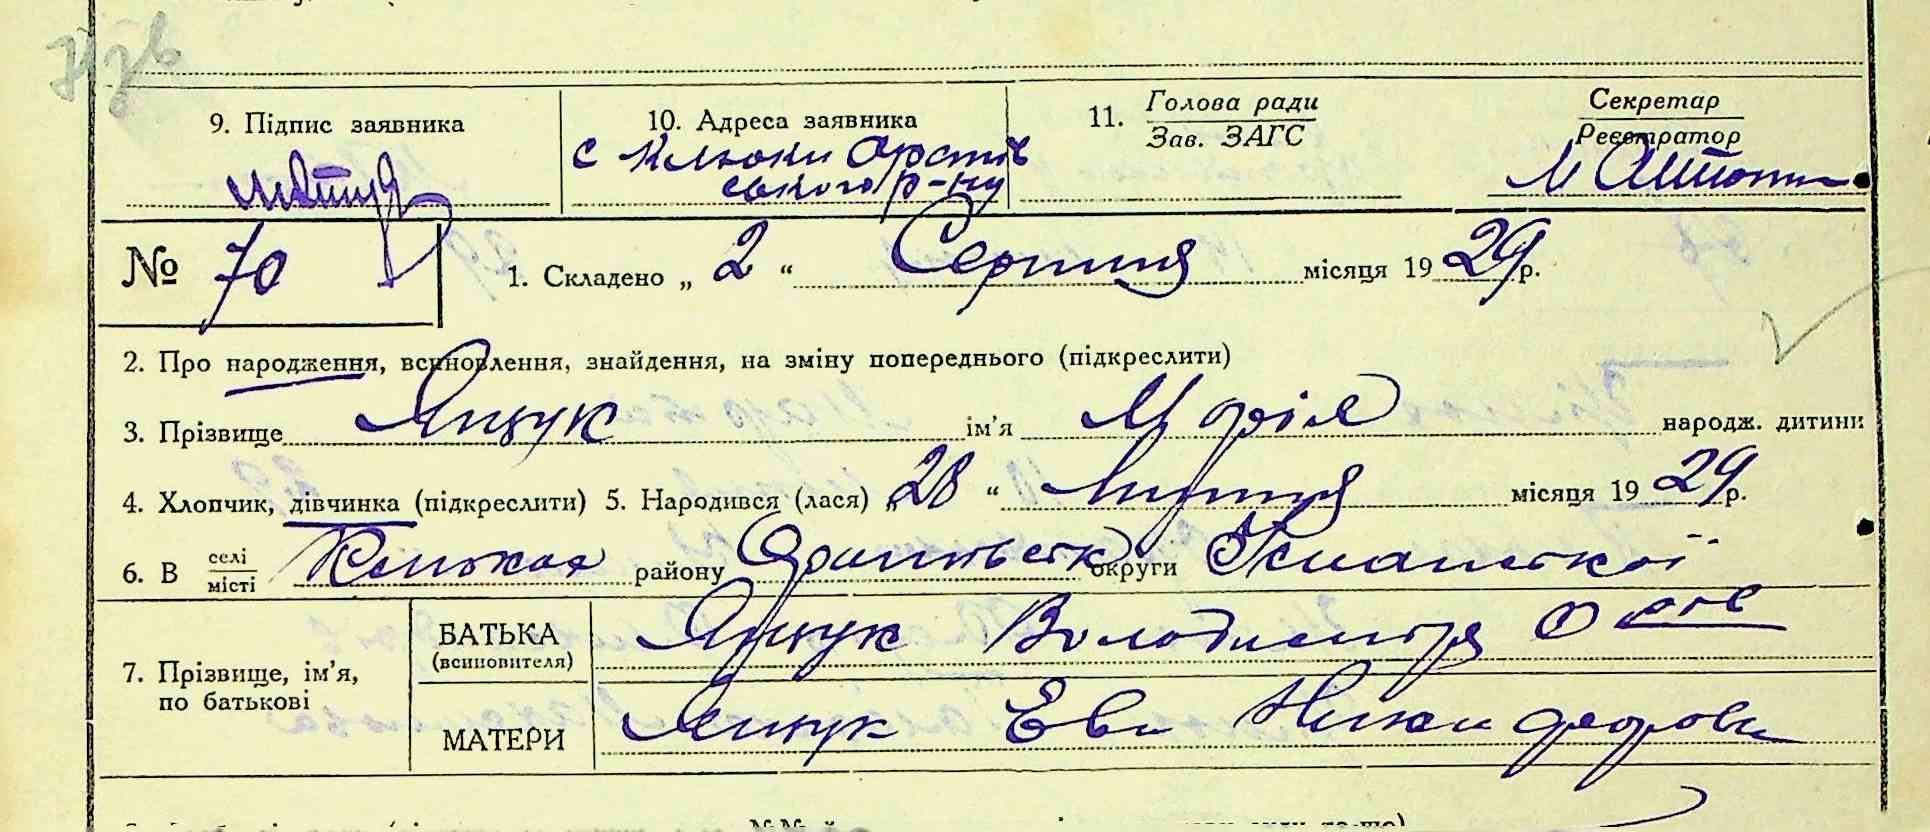 9. Підпис заявника
10. Адреса заявника
с Клюки Оратів
ського р-ну
11. Голова ради
Зав. ЗАГС
Секретар
Реєстратор
№ 70
1. Складено „ 2 “ Серпня місяця 1929 р.
2. Про народження, всиновлення, знайдення, на зміну попереднього (підкреслити)
3. Прізвище Ящук ім’я Марія народж. дитини
4. Хлопчик, дівчинка (підкреслити) 5. Народився (лася) „ 28 “ Липня місяця 1929 р.
6. В селі місті району округи Уманської
7. Прізвище, ім’я, по батькові
БАТЬКА (всиновителя) Ящук Володимира
МАТЕРИ Ящук Ева Никифоровна